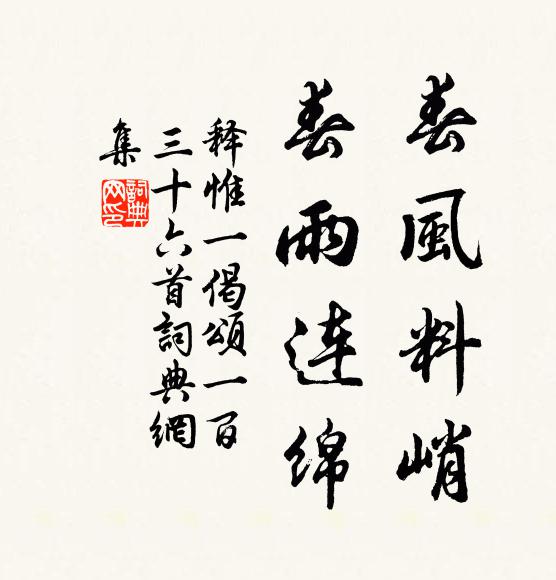 春風料峭
春雨连绵
释惟一偈頌一百
三十六首詞典網
集
詞典网印